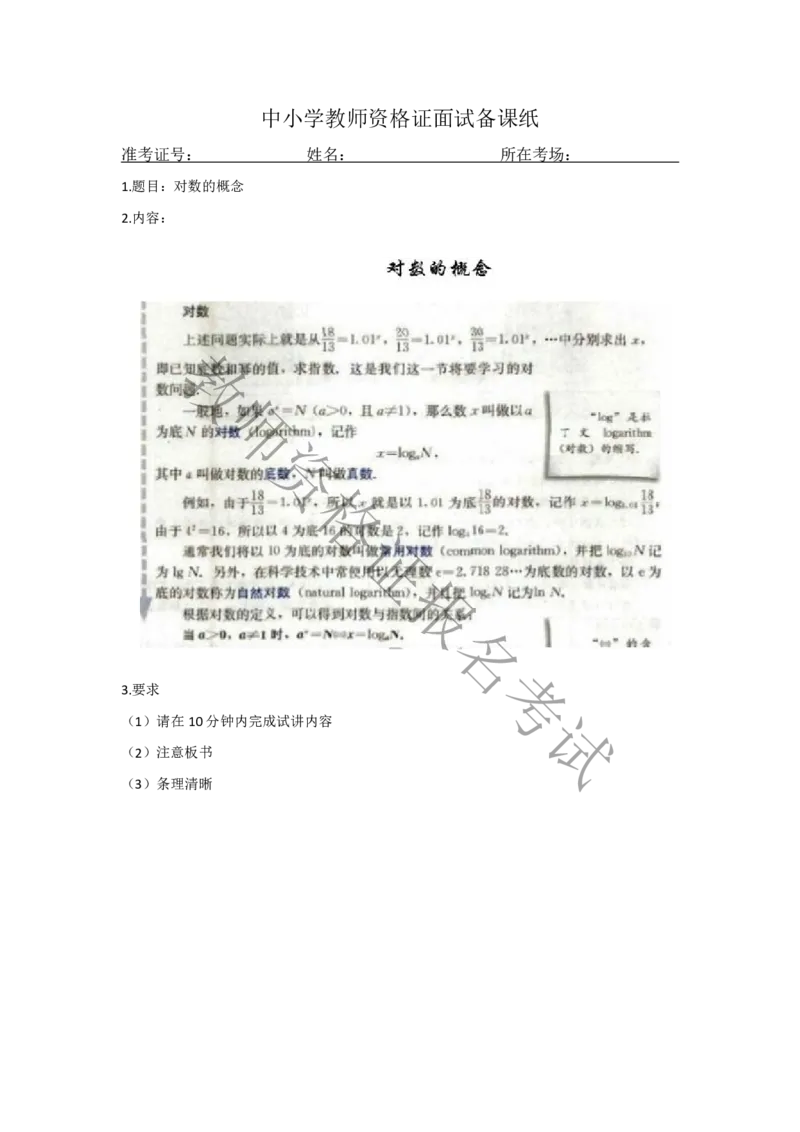 中小学教师资格证面试备课纸
准考证号： 姓名： 所在考场：
1.题目：对数的概念
2.内容：
对数的概念
对数
上述问题实际上就是从18/13=1.01ˣ，20/13=1.01ˣ，30/13=1.01ˣ，…中分别求出 x，
即已知底数和幂的值，求指数．这是我们这一节将要学习的对
数问题．
一般地，如果 aˣ=N（a>0，且 a≠1），那么数 x 叫做以 a
为底 N 的对数（logarithm），记作
x=logₐN，
其中 a 叫做对数的底数，N 叫做真数．
“log”是拉
丁文 logarithm
（对数）的缩写．
例如，由于18/13=1.01ˣ，所以 x 就是以 1.01 为底18/13的对数，记作 x=log₁.₀₁18/13；
由于 4²=16，所以以 4 为底 16 的对数是 2，记作 log₄16=2．
通常我们将以 10 为底的对数叫做常用对数（common logarithm），并把 log₁₀N 记
为 lg N．另外，在科学技术中常使用以无理数 e=2.718 28…为底数的对数，以 e 为
底的对数称为自然对数（natural logarithm），并且把 logₑN 记为 ln N．
根据对数的定义，可以得到对数与指数间的关系：
当 a>0，a≠1 时，aˣ=N⇔x=logₐN．
3.要求
（1）请在 10 分钟内完成试讲内容
（2）注意板书
（3）条理清晰
教师资格证报名考试